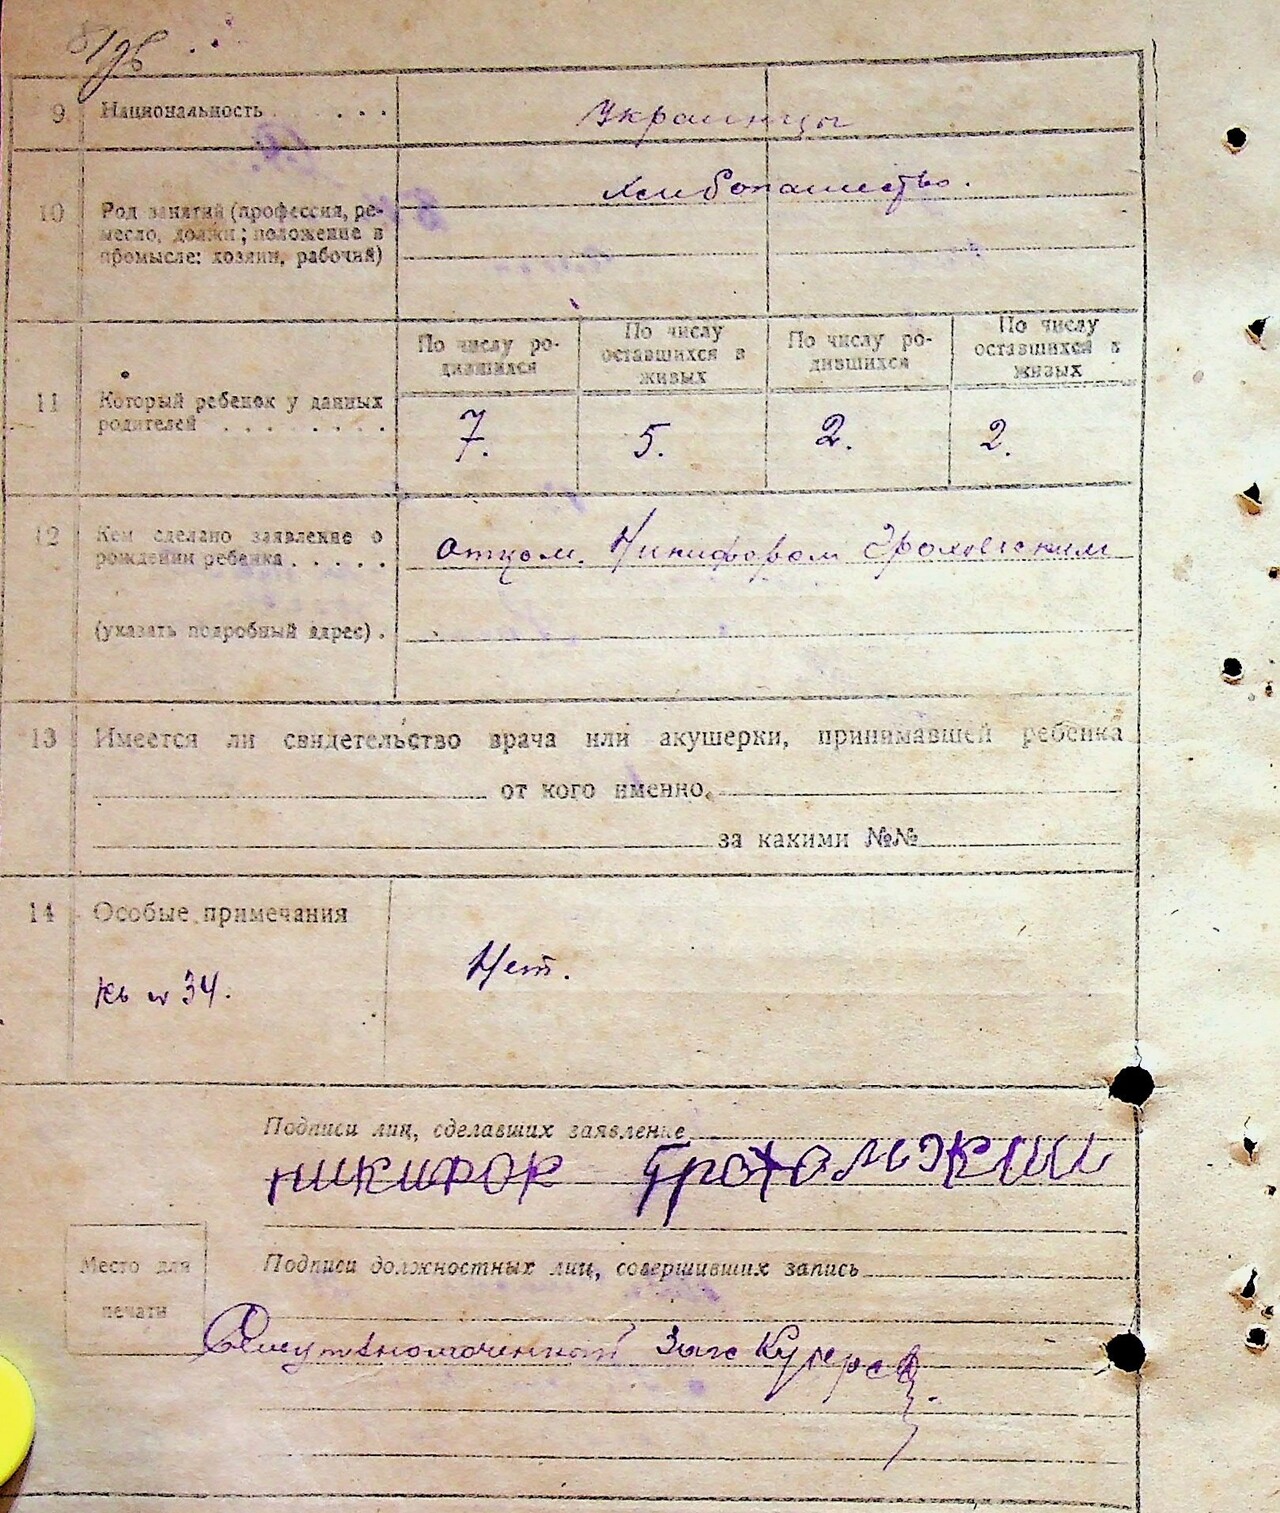 9 Национальность . . . . . .
Украинцы
10 Род занятий (профессия, ре-
месло, должн; положение в
промысле: хозяин, рабочий)
Хлибопашество.
11 Который ребенок у данных
родителей . . . . . . . .
По числу ро-
дившихся
По числу
оставшихся в
живых
По числу ро-
дившихся
По числу
оставшихся в
живых
7. 5. 2. 2.
12 Кем сделано заявление о
рождении ребенка . . . . .
отцом. Никифором
(указать подробный адрес) .
13 Имеется ли свидетельство врача или акушерки, принимавшей ребенка
от кого именно
за какими №№
14 Особые примечания
Нет.
34.
Подписи лиц, сделавших заявление
никифор
Место для
печати
Подписи должностных лиц, совершивших запись
Загс